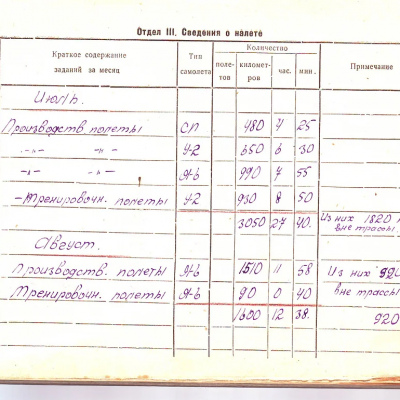 Отдел III. Сведения о налёте
Краткое содержание заданий за месяц
Тип самолета
Количество
поле-тов
километ-ров
час.
мин.
Примечание
Июль.
Производств. полеты СП 480 4 25
-"- -"- У-2 650 6 30
-"- -"- Я-6 990 7 55
-Тренировочн. полеты У-2 930 8 50
3050 27 40. Из них 1820 вне трассы.
Август.
Производств. полеты Я-6 1510 11 58 Из них 920 вне трассы
Тренировочн. полеты Я-6 90 0 40
1600 12 38. 920